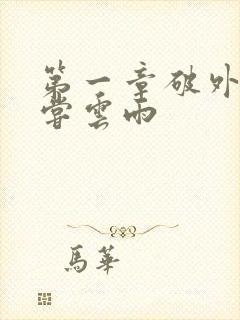 第一章破外
嘗雲雨
馬華